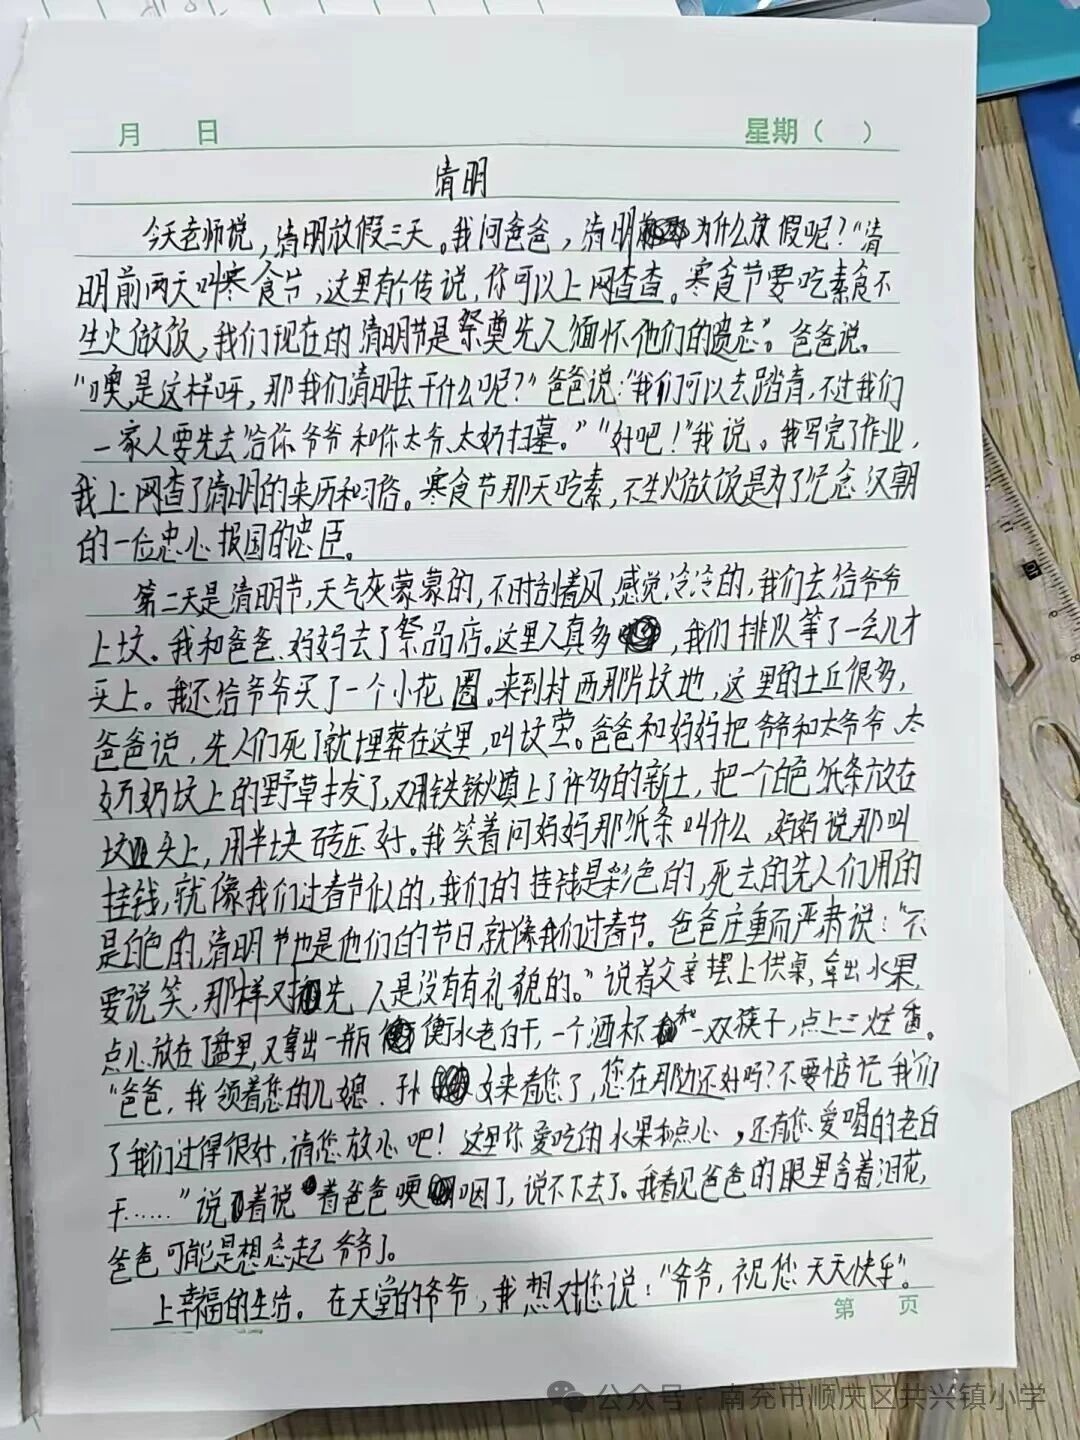 月 日 星期（ ）
清明
今天老师说，清明放假三天。我问爸爸，清明为什么放假呢？“清
明前两天叫寒食节，这里有个传说，你可以上网查查。寒食节要吃素食不
生火做饭，我们现在的清明节是祭奠先人缅怀他们的遗志”。爸爸说。
“噢，是这样呀，那我们清明去干什么呢？”爸爸说：“我们可以去踏青，不过我们
一家人要先去给你爷爷和你太爷、太奶扫墓。”“好吧！”我说。我写完了作业，
我上网查了清明的来历和习俗。寒食节那天吃素，不生火做饭是为了纪念汉朝
的一位忠心报国的忠臣。
第二天是清明节，天气灰蒙蒙的，不时刮着风，感觉冷冷的，我们去给爷爷
上坟。我和爸爸、妈妈去了祭品店。这里人真多，我们排队等了一会儿才
买上。我还给爷爷买了一个小花圈。来到村西那片坟地，这里的土丘很多，
爸爸说，先人们死了就埋葬在这里，叫坟茔。爸爸和妈妈把爷爷和太爷爷、太
奶奶坟上的野草拔了，又用铁锹填上了许多的新土，把一个白色纸条放在
坟头上，用半块砖压好。我笑着问妈妈那纸条叫什么，妈妈说那叫
挂钱，就像我们过春节似的，我们的挂钱是彩色的，死去的先人们用的
是白色的，清明节也是他们的节日，就像我们过春节。爸爸庄重而严肃说：“不
要说笑，那样对先人是没有有礼貌的。”说着父亲摆上供桌，拿出水果，
点心放在了盘里，又拿出一瓶衡水老白干，一个酒杯和一双筷子，点上三炷香。
“爸爸，我领着您的儿媳、孙女来看您了，您在那边还好吗？不要惦记我们
了我们过得很好，请您放心吧！这里你爱吃的水果和点心，还有您爱喝的老白
干……”说着说着爸爸哽咽了，说不下去了。我看见爸爸的眼里含着泪花，
爸爸可能是想念起爷爷了。
上幸福的生活。在天堂的爷爷，我想对您说：“爷爷，祝您天天快乐”。
第 页
公众号·南充市顺庆区共兴镇小学